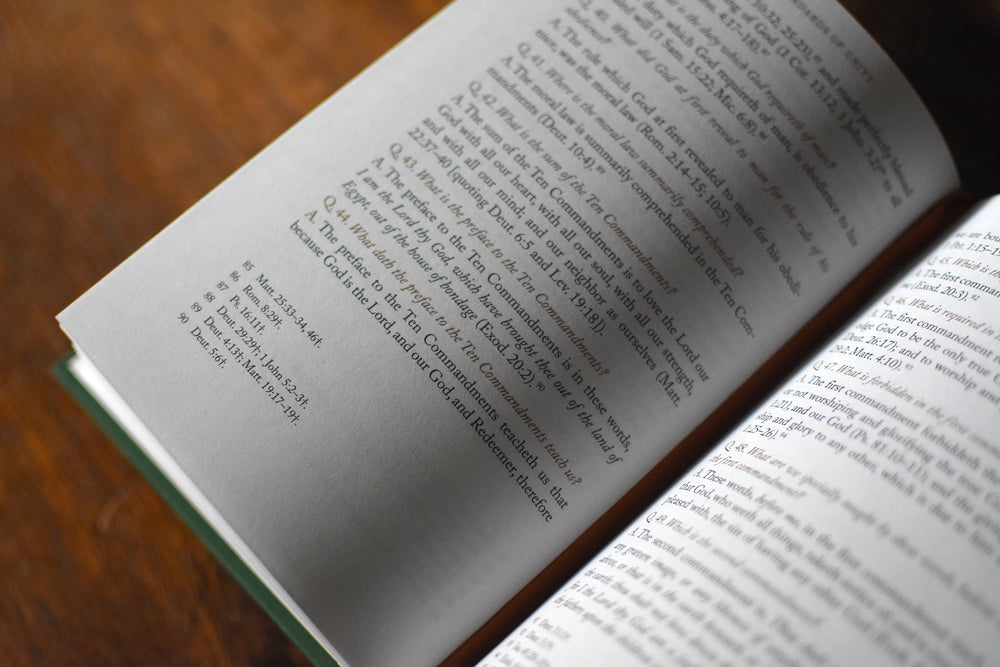 10:12, 25:23),⁸⁵ and made perfectly blessed
ing of God (1 Cor. 13:12, 1 John 3:2)⁸⁶ to all
4:17–18).⁸⁷
is the duty which God requireth of man?
duty which God requireth of man, is obedience to his
led will (1 Sam. 15:22, Mic. 6:8).⁸⁸
Q. 40. What did God at first reveal to man for the rule of his
A. The rule which God at first revealed to man for his obedi-
ence, was the moral law (Rom. 2:14–15, 10:5).
Q. 41. Where is the moral law summarily comprehended?
A. The moral law is summarily comprehended in the Ten Com-
mandments (Deut. 10:4).⁸⁹
Q. 42. What is the sum of the Ten Commandments?
A. The sum of the Ten Commandments is to love the Lord our
God with all our heart, with all our soul, with all our strength,
and with all our mind; and our neighbor as ourselves (Matt.
22:37–40 [quoting Deut. 6:5 and Lev. 19:18]).
Q. 43. What is the preface to the Ten Commandments?
A. The preface to the Ten Commandments is in these words,
I am the Lord thy God, which have brought thee out of the land of
Egypt, out of the house of bondage (Exod. 20:2).⁹⁰
Q. 44. What doth the preface to the Ten Commandments teach us?
A. The preface to the Ten Commandments teacheth us that
because God is the Lord, and our God, and Redeemer, therefore
85 Matt. 25:33–34, 46†.
86 Rom. 8:29†.
87 Ps. 16:11†.
88 Deut. 29:29†; 1 John 5:2–3†.
89 Deut. 4:13†; Matt. 19:17–19†.
90 Deut. 5:6†.
we are bou
Pet. 1:15–1
Q. 45. Which is th
A. The first comma
(Exod. 20:3).⁹²
Q. 46. What is required in
A. The first commandment
edge God to be the only true
(Deut. 26:17); and to worship and
Matt. 4:10).⁹³
Q. 47. What is forbidden in the first comm
A. The first commandment forbiddeth the
or not worshiping and glorifying, the
1:21), and our God (Ps. 81:10–11); and the giving
ship and glory to any other, which is due to him
1:25–26).⁹⁴
Q. 48. What are we specially taught by these words
the first commandment?
A. These words, before me, in the first commandment
that God, who seeth all things, taketh notice of, and
pleased with, the sin of having any other
Q. 49. Which is the second commandment?
A. The second commandment is,
any graven image, or any likeness
above, or that is in the earth
the earth: thou shalt not bow down
for I the Lord thy God am a
the fathers upon the children